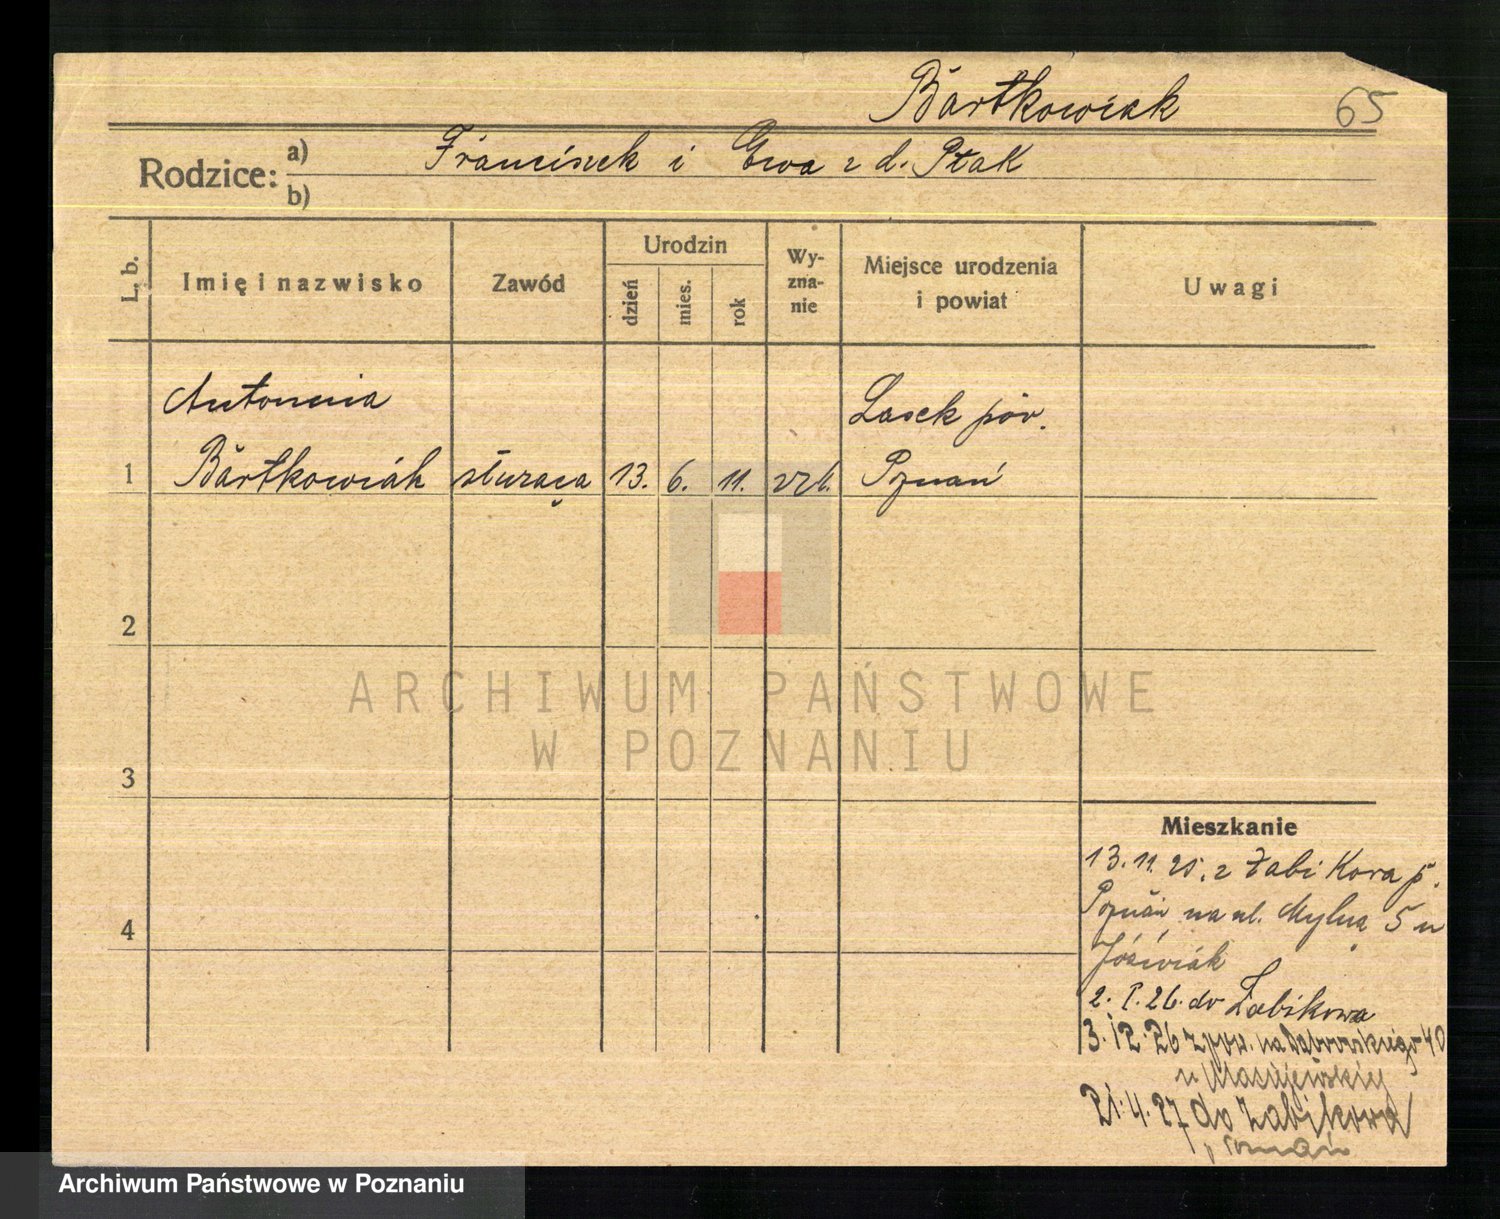 Bartkowiak 65
Rodzice: a) Franciszek i Ewa z d. Ptak
b)
L. b. Imię i nazwisko Zawód Urodzin dzień mies. rok Wyznanie Miejsce urodzenia i powiat Uwagi
Antonina Lasek pow.
1 Bartkowiak służąca 13. 6. 11. rzk. Poznań
2
ARCHIWUM PAŃSTWOWE
W POZNANIU
3
Mieszkanie
13. 11. 25. z Żabikowa p.
Poznań na ul. Mylną 5 u
Jóźwiak
4
2. 1. 26. do Żabikowa
3. 12. 26 z pow. na Dąbrowskiego 40
u Maciejewskiej
21. 4. 27 do Żabikowa
Poznań
Archiwum Państwowe w Poznaniu